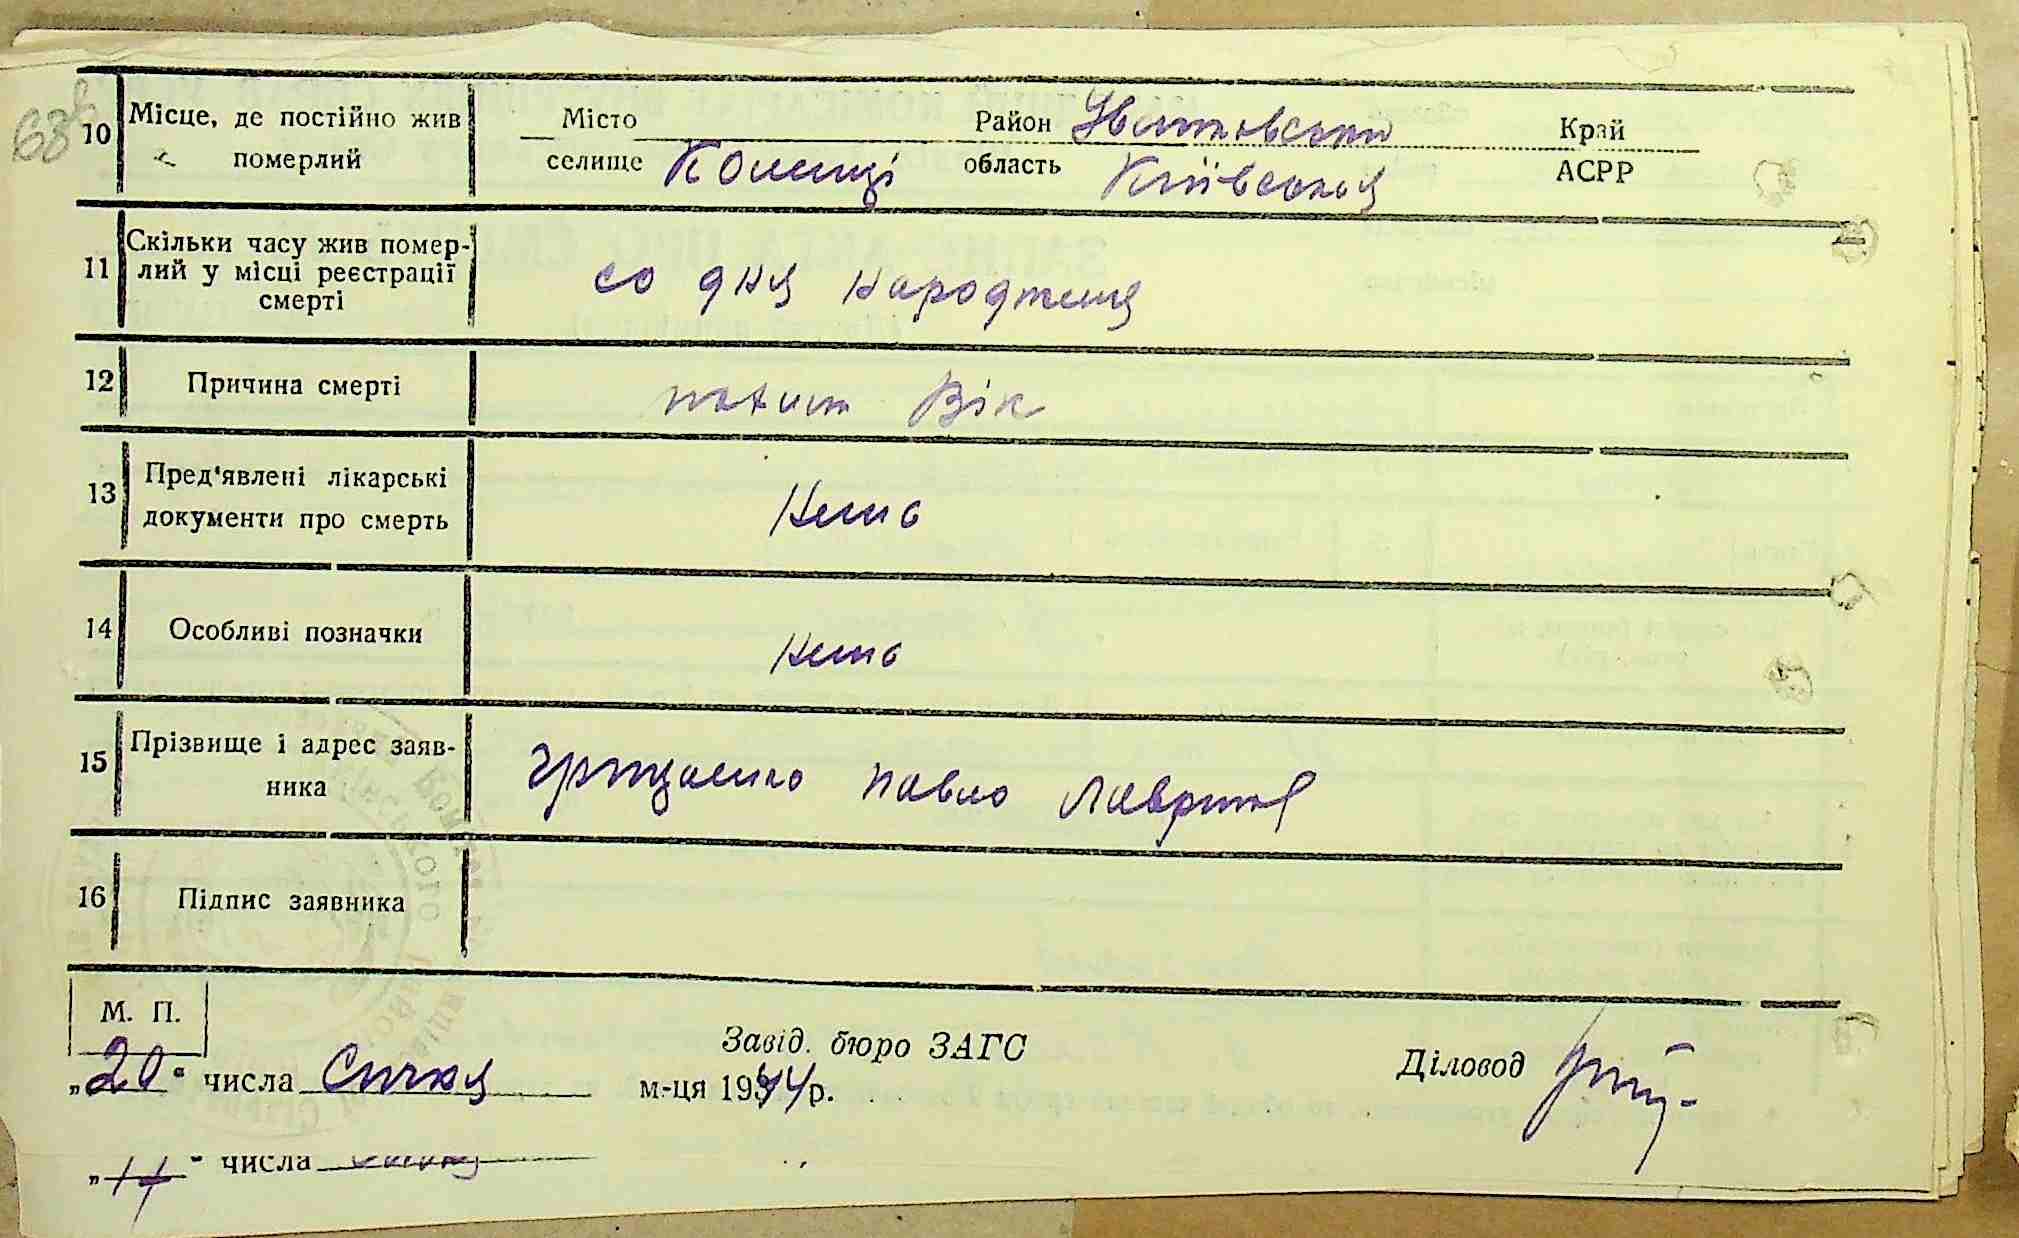 68
10 Місце, де постійно жив померлий
Місто Район Край
селище область Київська АСРР
11 Скільки часу жив помер-
лий у місці реєстрації
смерті
со дня народженя
12 Причина смерті
Вік
13 Пред'явлені лікарські
документи про смерть
Нема
14 Особливі позначки
Нема
15 Прізвище і адрес заяв-
ника
Грищенко Павло
16 Підпис заявника
М. П.
Завід. бюро ЗАГС
Діловод
„20" числа Січня м-ця 1944 р.
„17" числа